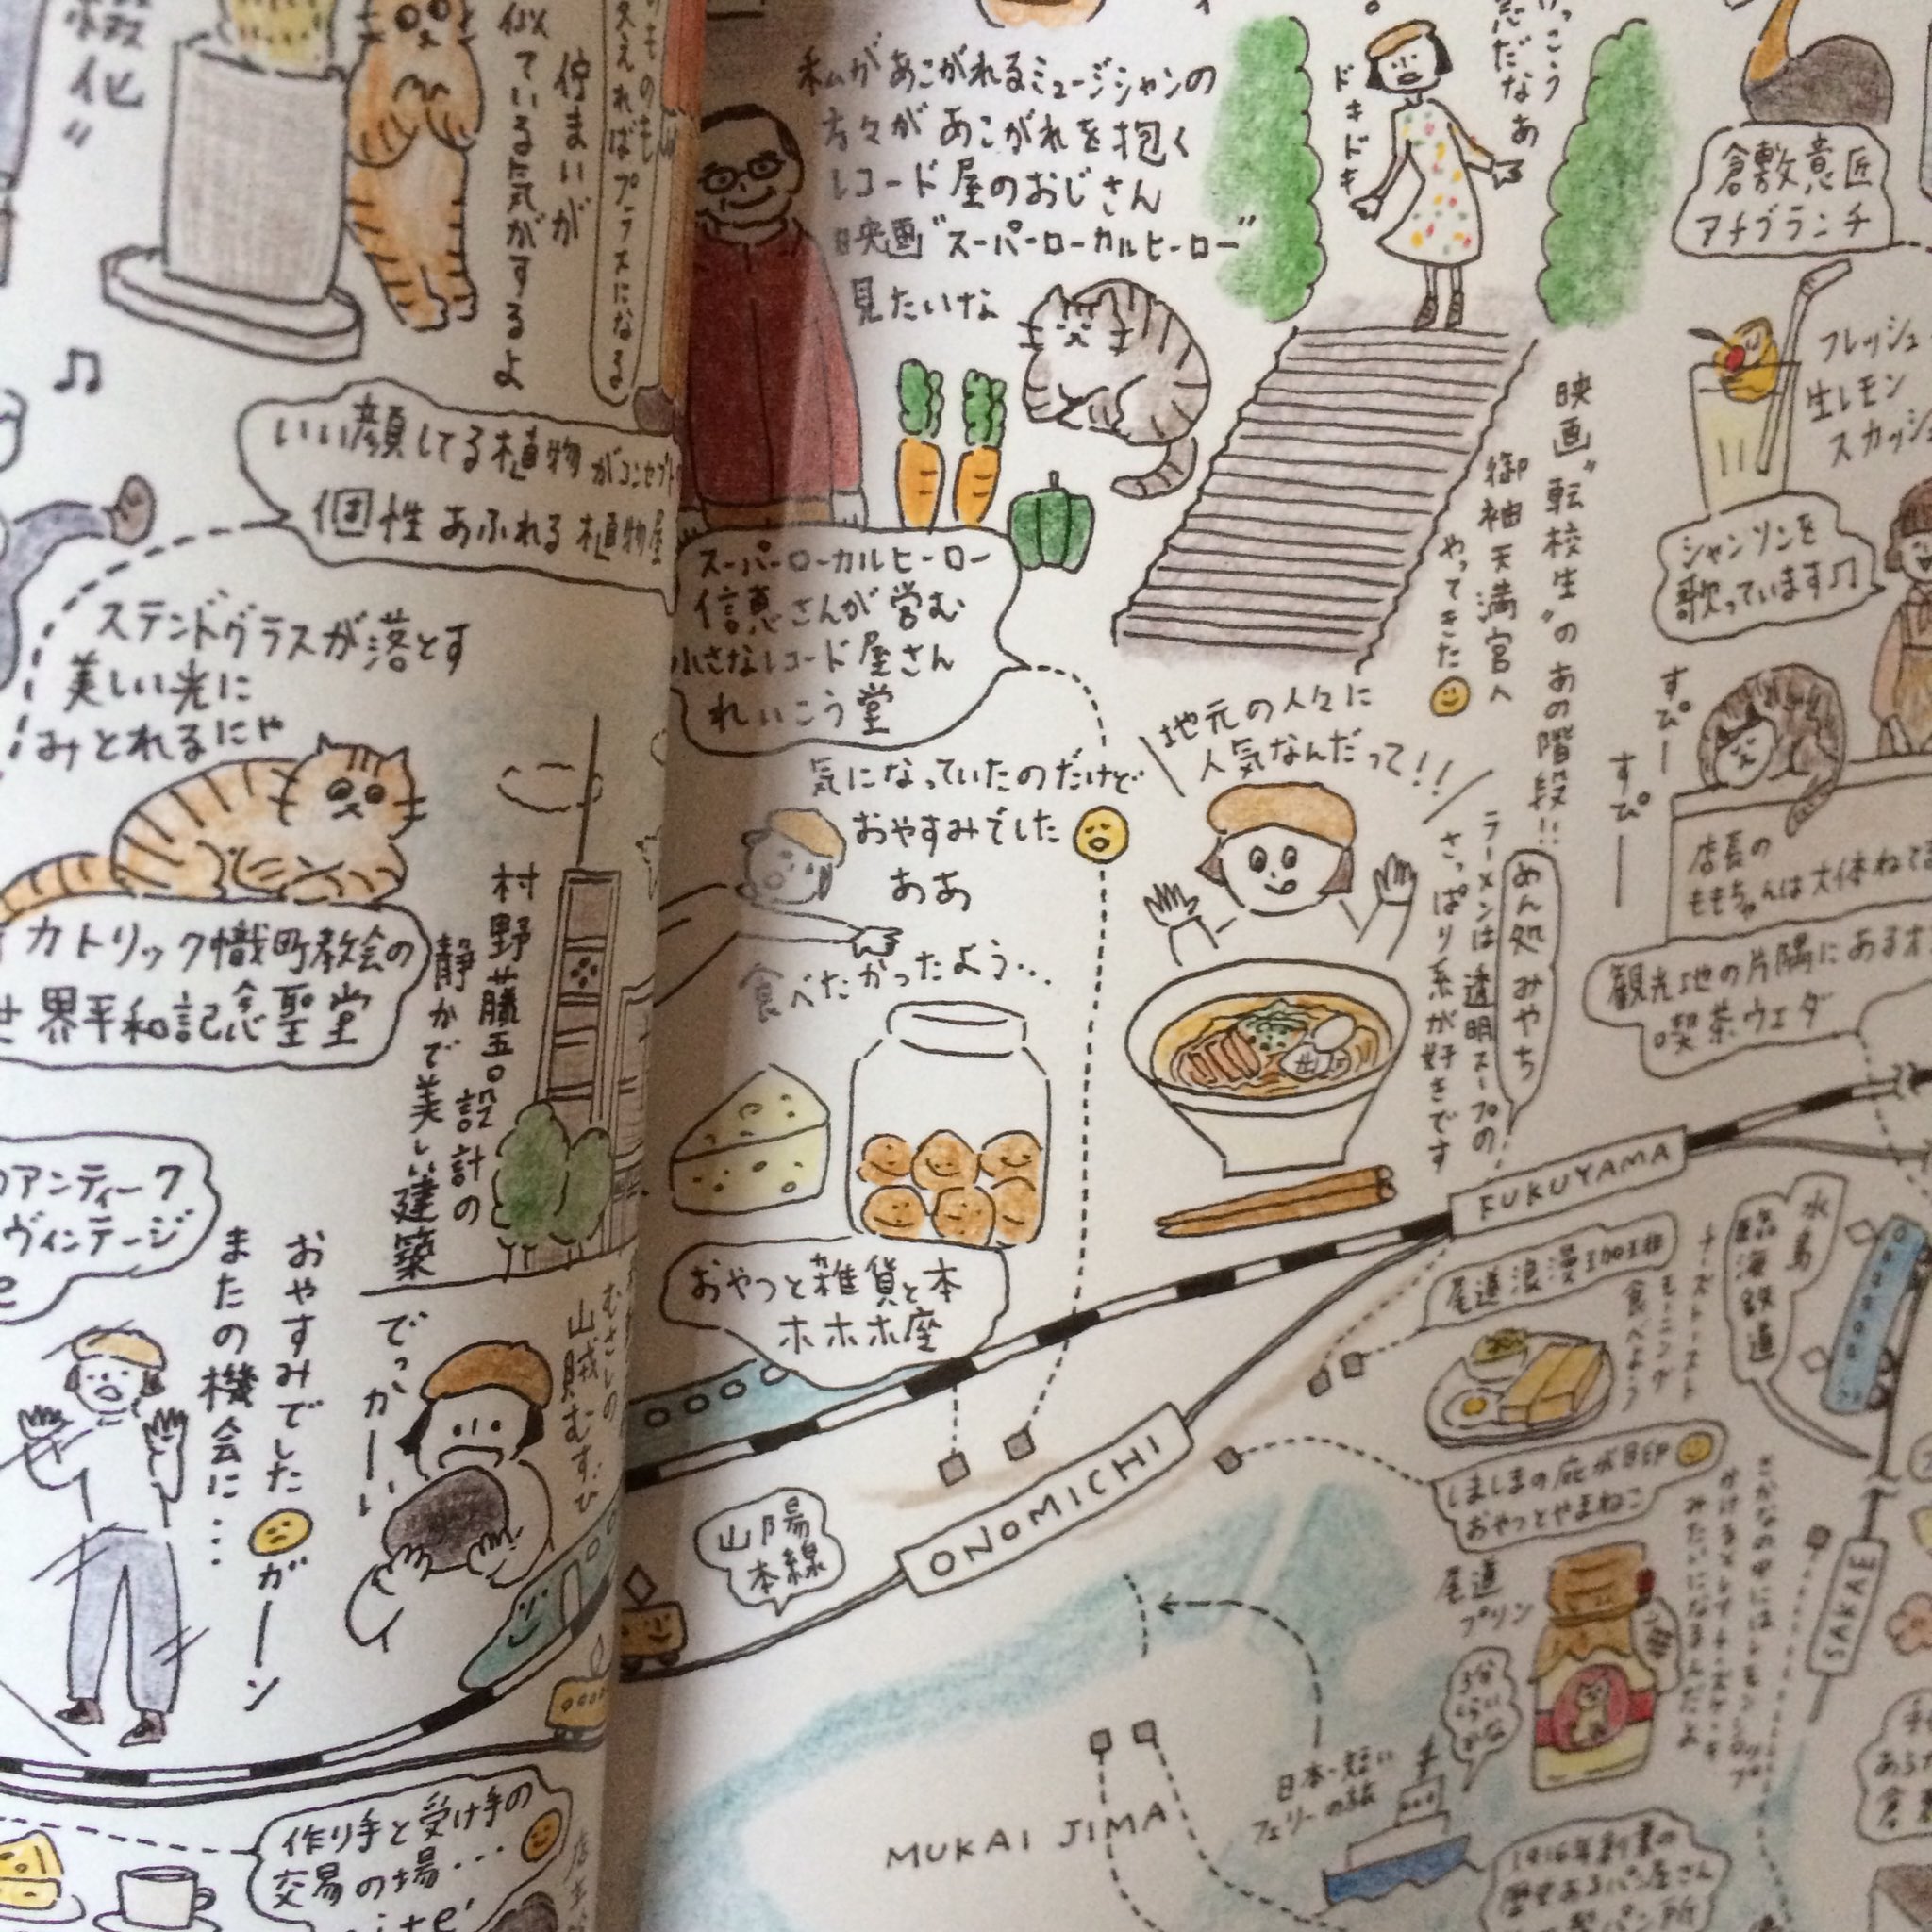 緻化〟
佇まいが
似ている気がするよ
えればプラスになる
いい顔してる植物がコンセプト
個性あふれる植物屋
ステンドグラスが落とす
美しい光に
みとれるにゃ
カトリック幟町教会の
世界平和記念聖堂
村野藤吾設計の
静かで美しい建築
アンティーク
ヴィンテージ
おやすみでした
またの機会に…
がーーーン
でっかーーい
むさしの
山賊むすび
作り手と受け手の
交易の場・・・
私があこがれるミュージシャンの
方々があこがれを抱く
レコード屋のおじさん
映画〝スーパーローカルヒーロー〟
見たいな
スーパーローカルヒーロー
信恵さんが営む
小さなレコード屋さん
れいこう堂
ドキドキ
映画〝転校生〟のあの階段!!
御袖天満宮へ
やってきた
気になっていたのだけど
おやすみでした
ああ
食べたかったよう…
おやつと雑貨と本
ホホホ座
地元の人々に
人気なんだって!!
めん処みやち
ラーメンは透明スープの
さっぱり系が好きです
倉敷意匠
アチブランチ
フレッシュ
生レモン
スカッシュ
シャンソンを
歌っています♫
すぴー
すぴーー
店長の
ももちゃんは大体ねてる
観光地の片隅にある
喫茶ウエダ
FUKUYAMA
尾道浪漫珈琲
チーズトースト
モーニング
食べよう
水島
臨海鉄道
ONOMICHI
山陽
本線
しましまの庇が目印
おやつとやまねこ
尾道
プリン
さかなの中にはレモンシロップ
かけるとレモンチーズケーキ
みたいになるんだよ
SAKAE
MUKAI JIMA
日本一短い
フェリーの旅
5分
くらい
かな
1916年創業の
歴史あるパン屋さん
パン所